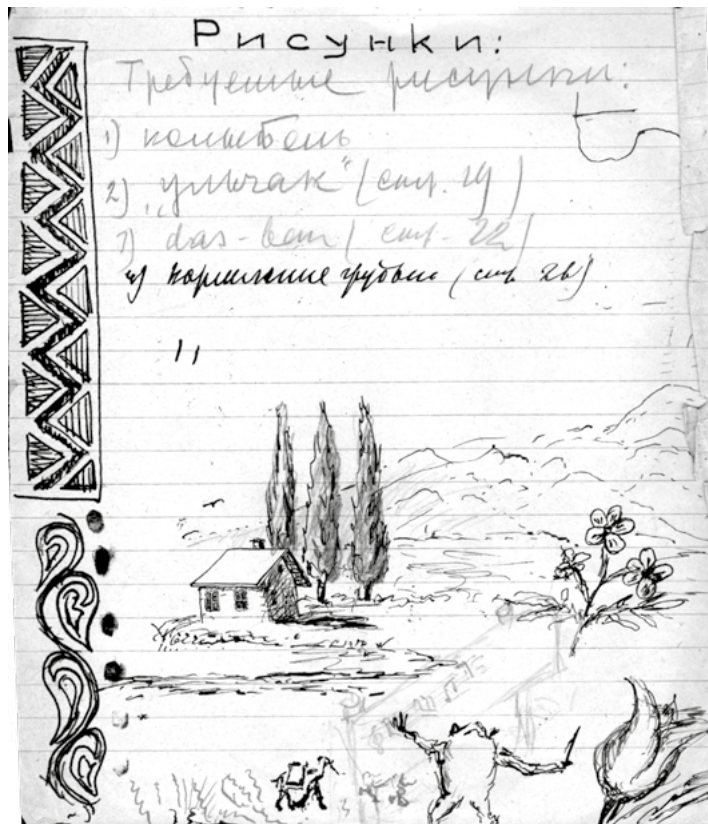 Рисунки:
Требуемые рисунки:
1) колыбель
2) „ульчак" (стр. 19)
3) das-bau (стр. 22)
4) кормление грудью (стр. 26)